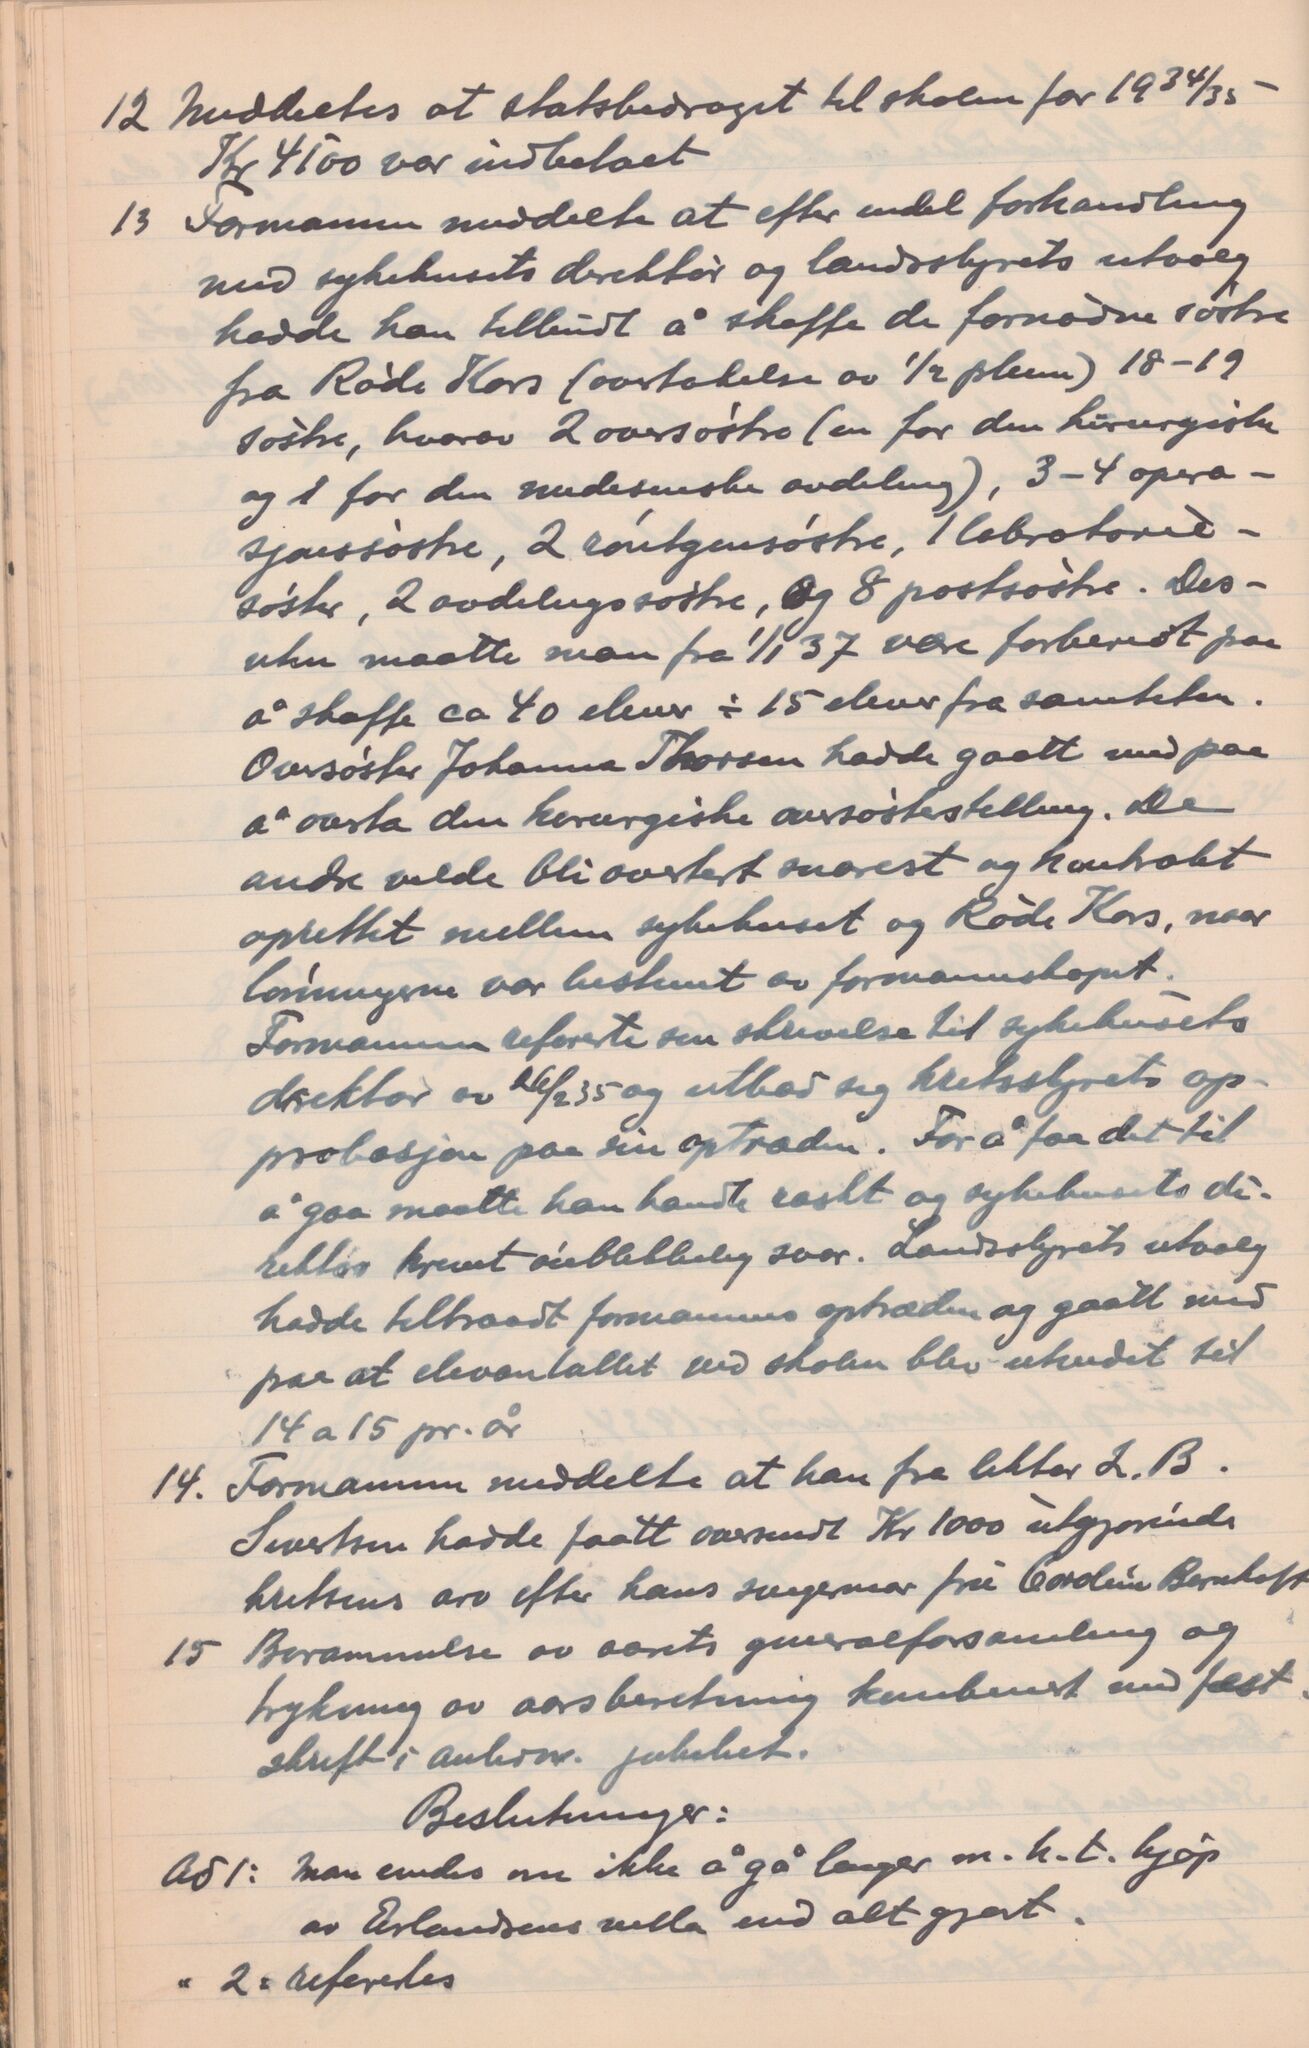 12 Meddeltes at statsbidraget til skolen for 1934/35
Kr 4100 var indbetalt
13 Formannen meddelte at efter endel forhandling
med sykehusets direktør og landsstyrets utvalg
hadde han tilbudt å skaffe de fornødne søstre
fra Røde Kors (overtakelse av 1/2 pleien) 18-19
søstre, hvorav 2 oversøstre (en for den kirurgiske
og 1 for den medisinske avdeling), 3-4 opera-
sjonssøstre, 2 røntgensøstre, 1 labratorie-
søster, 2 avdelingssøstre, og 8 postsøstre. Des-
uten maatte man fra 1/1 37 være forberedt paa
å skaffe ca 40 elever ÷ 15 elever fra samtiden.
Oversøster Johanna Thorsen hadde gaatt med paa
å overta den kirurgiske oversøsterstilling. De
andre vilde bli avertert snarest og kontrakt
oprettet mellem sykehuset og Røde Kors, naar
lønningerne var bestemt av formannskapet.
Formannen refererte sin skrivelse til sykehusets
direktør av 26/2 35 og utbad sig kretsstyrets ap-
probasjon paa sin optræden. For å faa det til
å gaa maatte han handle raskt og sykehusets di-
rektør krevet øieblikkelig svar. Landsstyrets utvalg
hadde tiltraadt formannens optræden og gaatt med
paa at elevantallet ved skolen blev utvidet til
14 a 15 pr. år
14. Formannen meddelte at han fra lektor L. B.
Sivertsen hadde faatt oversendt Kr 1000 utgjørende
kretsens arv efter hans svigermor frú Cordeún Bernhoft
15 Berammelse av aarets generalforsamling og
trykning av aarsberetning kombinert med fest-
skrift i anledn. jubileet.
Beslutninger:
Ad 1: Man enedes om ikke å gå lenger m. h. t. kjøp
av Erlandsens villa end alt gjort.
" 2: refertes